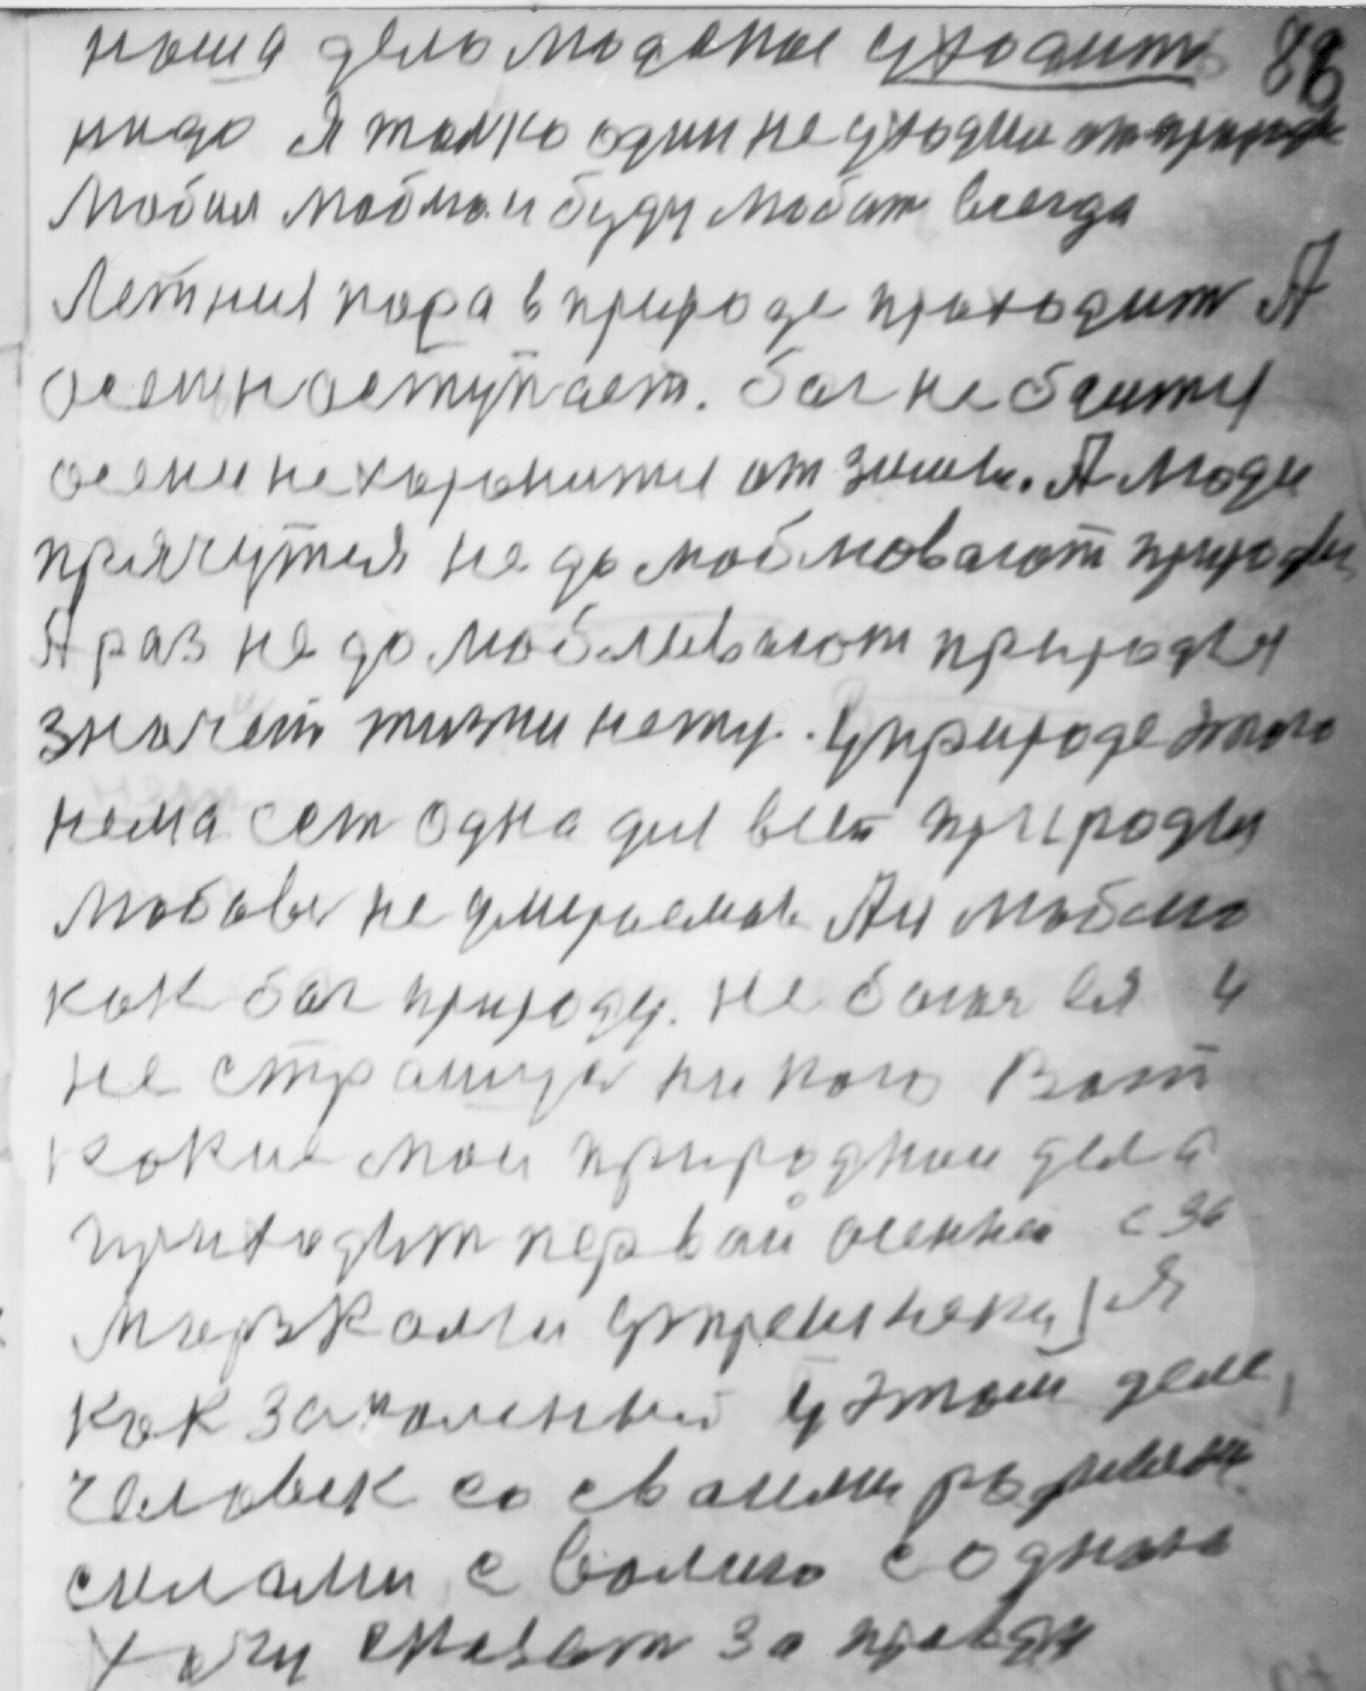 наша дело людское уходить 88
надо Я толко один не уходил от природы
Любил люблю и буду любит всегда
Летния пора в природе проходит А
осен ноступает. бог не боится
осени не хоронится от зимы. А люди
прячутся не долюбловают природы
А раз не долюбливают природы
значет жизни нету. У природе этого
нема ест одна для всей природы
любовь не умираемая А я люблю
как бог природу. не боюся и
не стращуся никого Вот
какие мои природнои дела
приходят первай осенней с за
мярзкоми утренняки, Я
как закаленный у этом деле,
человек со своими
силами с волию с одною
хочу сказат за правду